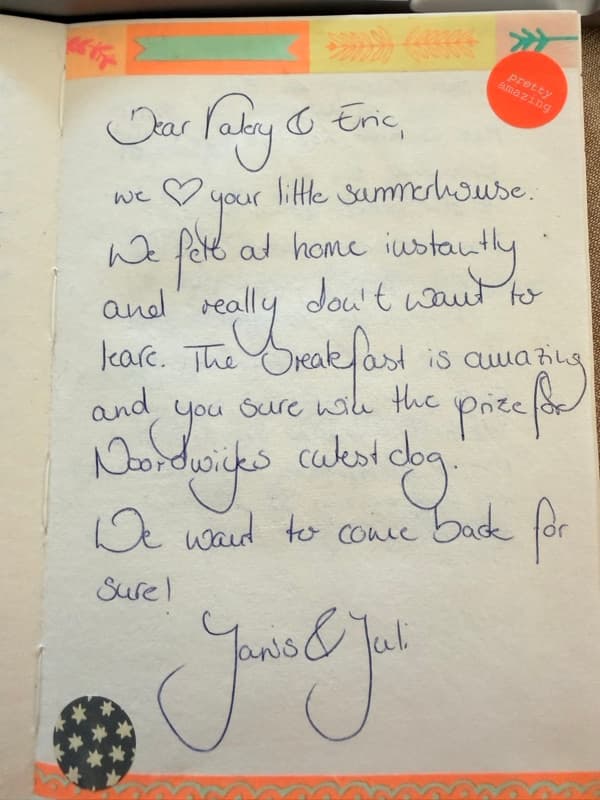 pretty
amazing
Dear Valery & Eric,
we ♡ your little summerhouse.
We felt at home instantly
and really don't want to
leave. The breakfast is amazing
and you sure win the prize for
Noordwijks cutest dog.
We want to come back for
sure!
Janis & Juli